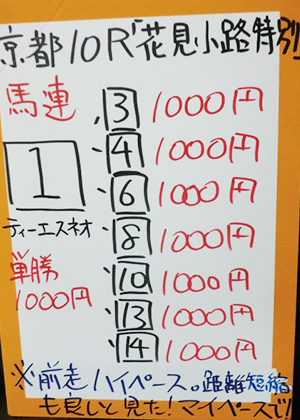 京都10R「花見小路特別」
馬連
1
ティーエスネオ
単勝
1000円
3 1000円
4 1000円
6 1000円
8 1000円
10 1000円
13 1000円
14 1000円
※前走ハイペース。距離短縮
も良しと見た!マイペースで!